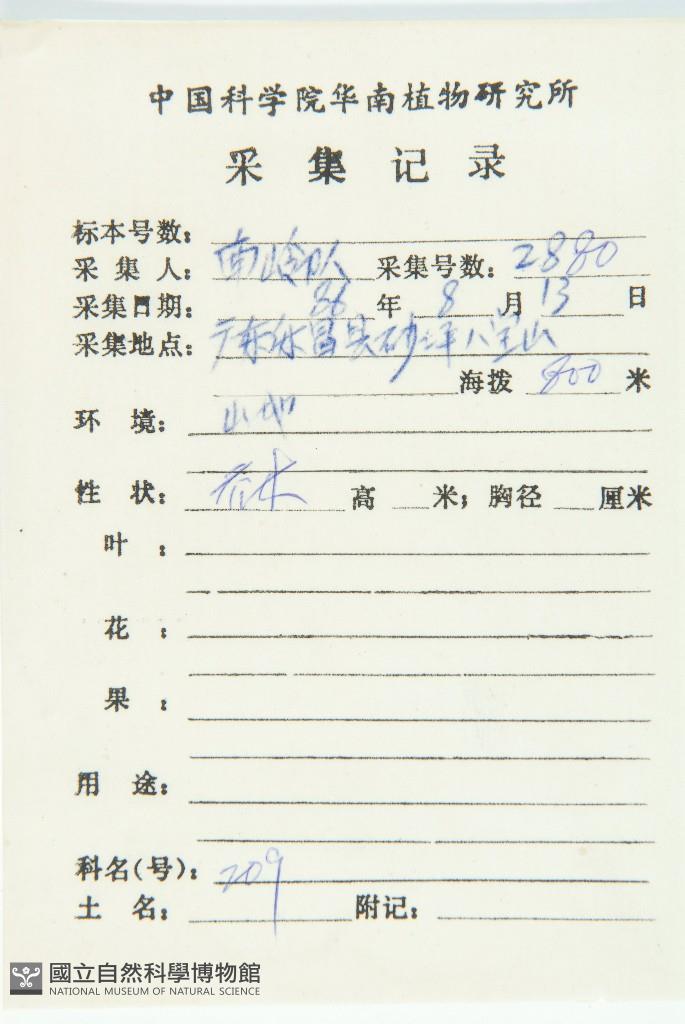 中国科学院华南植物研究所
采集记录
标本号数：
采集人：南岭队 采集号数：2880
采集日期：86年8月13日
采集地点：广东乐昌县砂坪八宝山
海拨800米
环境：山地
性状：乔木 高 米；胸径 厘米
叶：
花：
果：
用途：
科名(号)：209
土名： 附记：
國立自然科學博物館
NATIONAL MUSEUM OF NATURAL SCIENCE